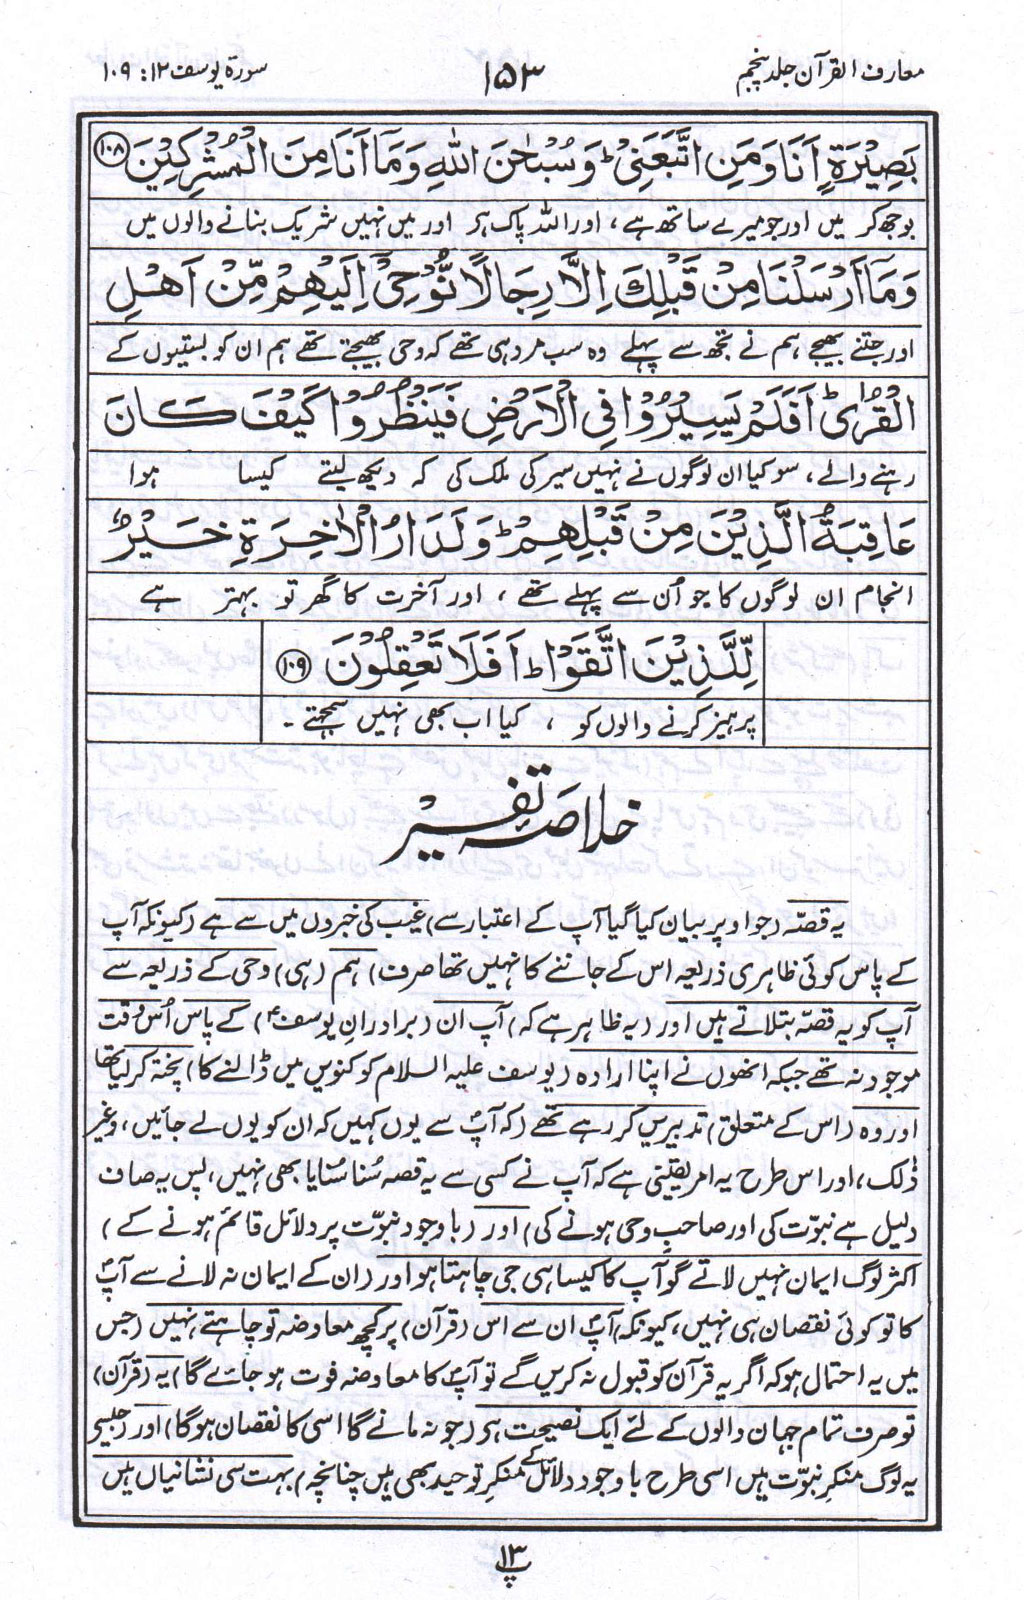 معارف القرآن جلد پنجم
۱۵۳
سورۃ یوسف ۱۲: ۱۰۹
بَصِيْرَةٍ اَنَا وَمَنِ اتَّبَعَنِيْ ؕ وَسُبْحٰنَ اللّٰهِ وَمَآ اَنَا مِنَ الْمُشْرِكِيْنَ ﴿۱۰۸﴾
بوجھ کر میں اور جو میرے ساتھ ہے ، اور اللہ پاک ہر اور میں نہیں شریک بنانے والوں میں
وَمَآ اَرْسَلْنَا مِنْ قَبْلِكَ اِلَّا رِجَالًا نُّوْحِيْٓ اِلَيْهِمْ مِّنْ اَهْلِ
اور جتنے بھیجے ہم نے تجھ سے پہلے وہ سب مرد ہی تھے کہ وحی بھیجتے تھے ہم ان کو بستیوں کے
الْقُرٰى ؕ اَفَلَمْ يَسِيْرُوْا فِي الْاَرْضِ فَيَنْظُرُوْا كَيْفَ كَانَ
رہنے والے ، سو کیا ان لوگوں نے نہیں سیر کی ملک کی کہ دیکھ لیتے کیسا ہوا
عَاقِبَةُ الَّذِيْنَ مِنْ قَبْلِهِمْ ؕ وَلَدَارُ الْاٰخِرَةِ خَيْرٌ
انجام ان لوگوں کا جو اُن سے پہلے تھے ، اور آخرت کا گھر تو بہتر ہے
لِّلَّذِيْنَ اتَّقَوْا ؕ اَفَلَا تَعْقِلُوْنَ ﴿۱۰۹﴾
پرہیز کرنے والوں کو ، کیا اب بھی نہیں سمجھتے ۔
خلاصۂ تفسیر
یہ قصّہ (جو اوپر بیان کیا گیا آپ کے اعتبار سے) غیب کی خبروں میں سے ہے (کیونکہ آپ
کے پاس کوئی ظاہری ذریعہ اس کے جاننے کا نہیں تھا صرف) ہم (ہی) وحی کے ذریعہ سے
آپ کو یہ قصّہ بتلاتے ہیں اور (یہ ظاہر ہے کہ) آپ ان (برادرانِ یوسفؑ) کے پاس اُس وقت
موجود نہ تھے جبکہ انھوں نے اپنا ارادہ (یوسف علیہ السلام کو کنویں میں ڈالنے کا) پختہ کر لیا تھا
اور وہ (اس کے متعلق) تدبیریں کر رہے تھے (کہ آپؑ سے یوں کہیں کہ ان کو یوں لے جائیں، وغیر
ذٰلک، اور اس طرح یہ امر یقینی ہے کہ آپ نے کسی سے یہ قصہ سُنا سُنایا بھی نہیں، پس یہ صاف
دلیل ہے نبوّت کی اور صاحبِ وحی ہونے کی) اور (باوجود نبوّت پر دلائل قائم ہونے کے )
اکثر لوگ ایمان نہیں لاتے گو آپ کا کیسا ہی جی چاہتا ہو اور (ان کے ایمان نہ لانے سے آپؐ
کا تو کوئی نقصان ہی نہیں، کیونکہ) آپؐ ان سے اس (قرآن) پر کچھ معاوضہ تو چاہتے نہیں (جس
میں یہ احتمال ہو کہ اگر یہ قرآن کو قبول نہ کریں گے تو آپؐ کا معاوضہ فوت ہو جائے گا) یہ (قرآن)
تو صرف تمام جہان والوں کے لئے ایک نصیحت ہر (جو نہ مانے گا اسی کا نقصان ہوگا) اور (جیسے
یہ لوگ منکرِ نبوّت ہیں اسی طرح باوجود دلائل کے منکرِ توحید بھی ہیں چنانچہ) بہت سی نشانیاں ہیں
پ ۱۳